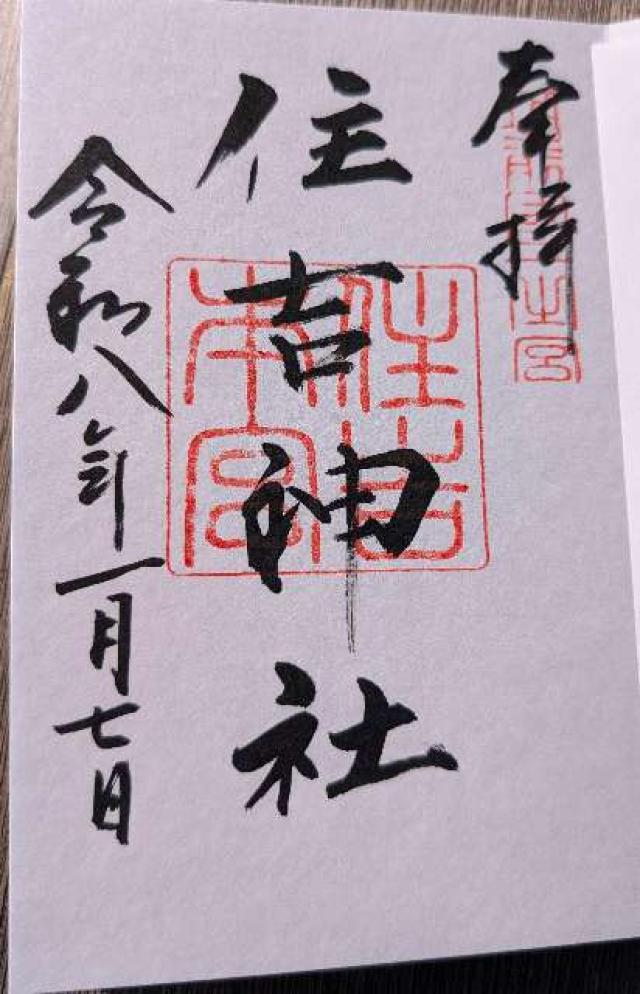 奉拝
住吉神社
住吉本宮
令和八年一月七日